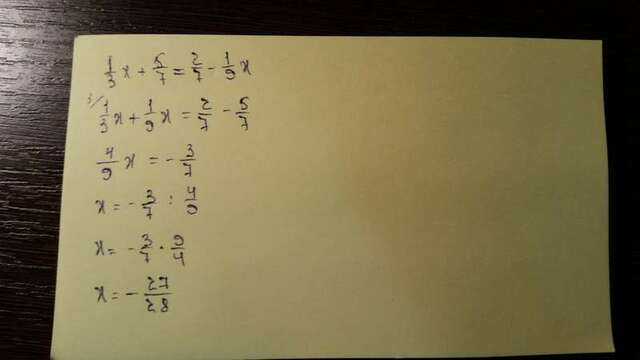 1/3 x + 5/7 = 2/7 - 1/9 x
3/ 1/3 x + 1/9 x = 2/7 - 5/7
4/9 x = - 3/7
x = - 3/7 : 4/9
x = - 3/7 · 9/4
x = - 27/28